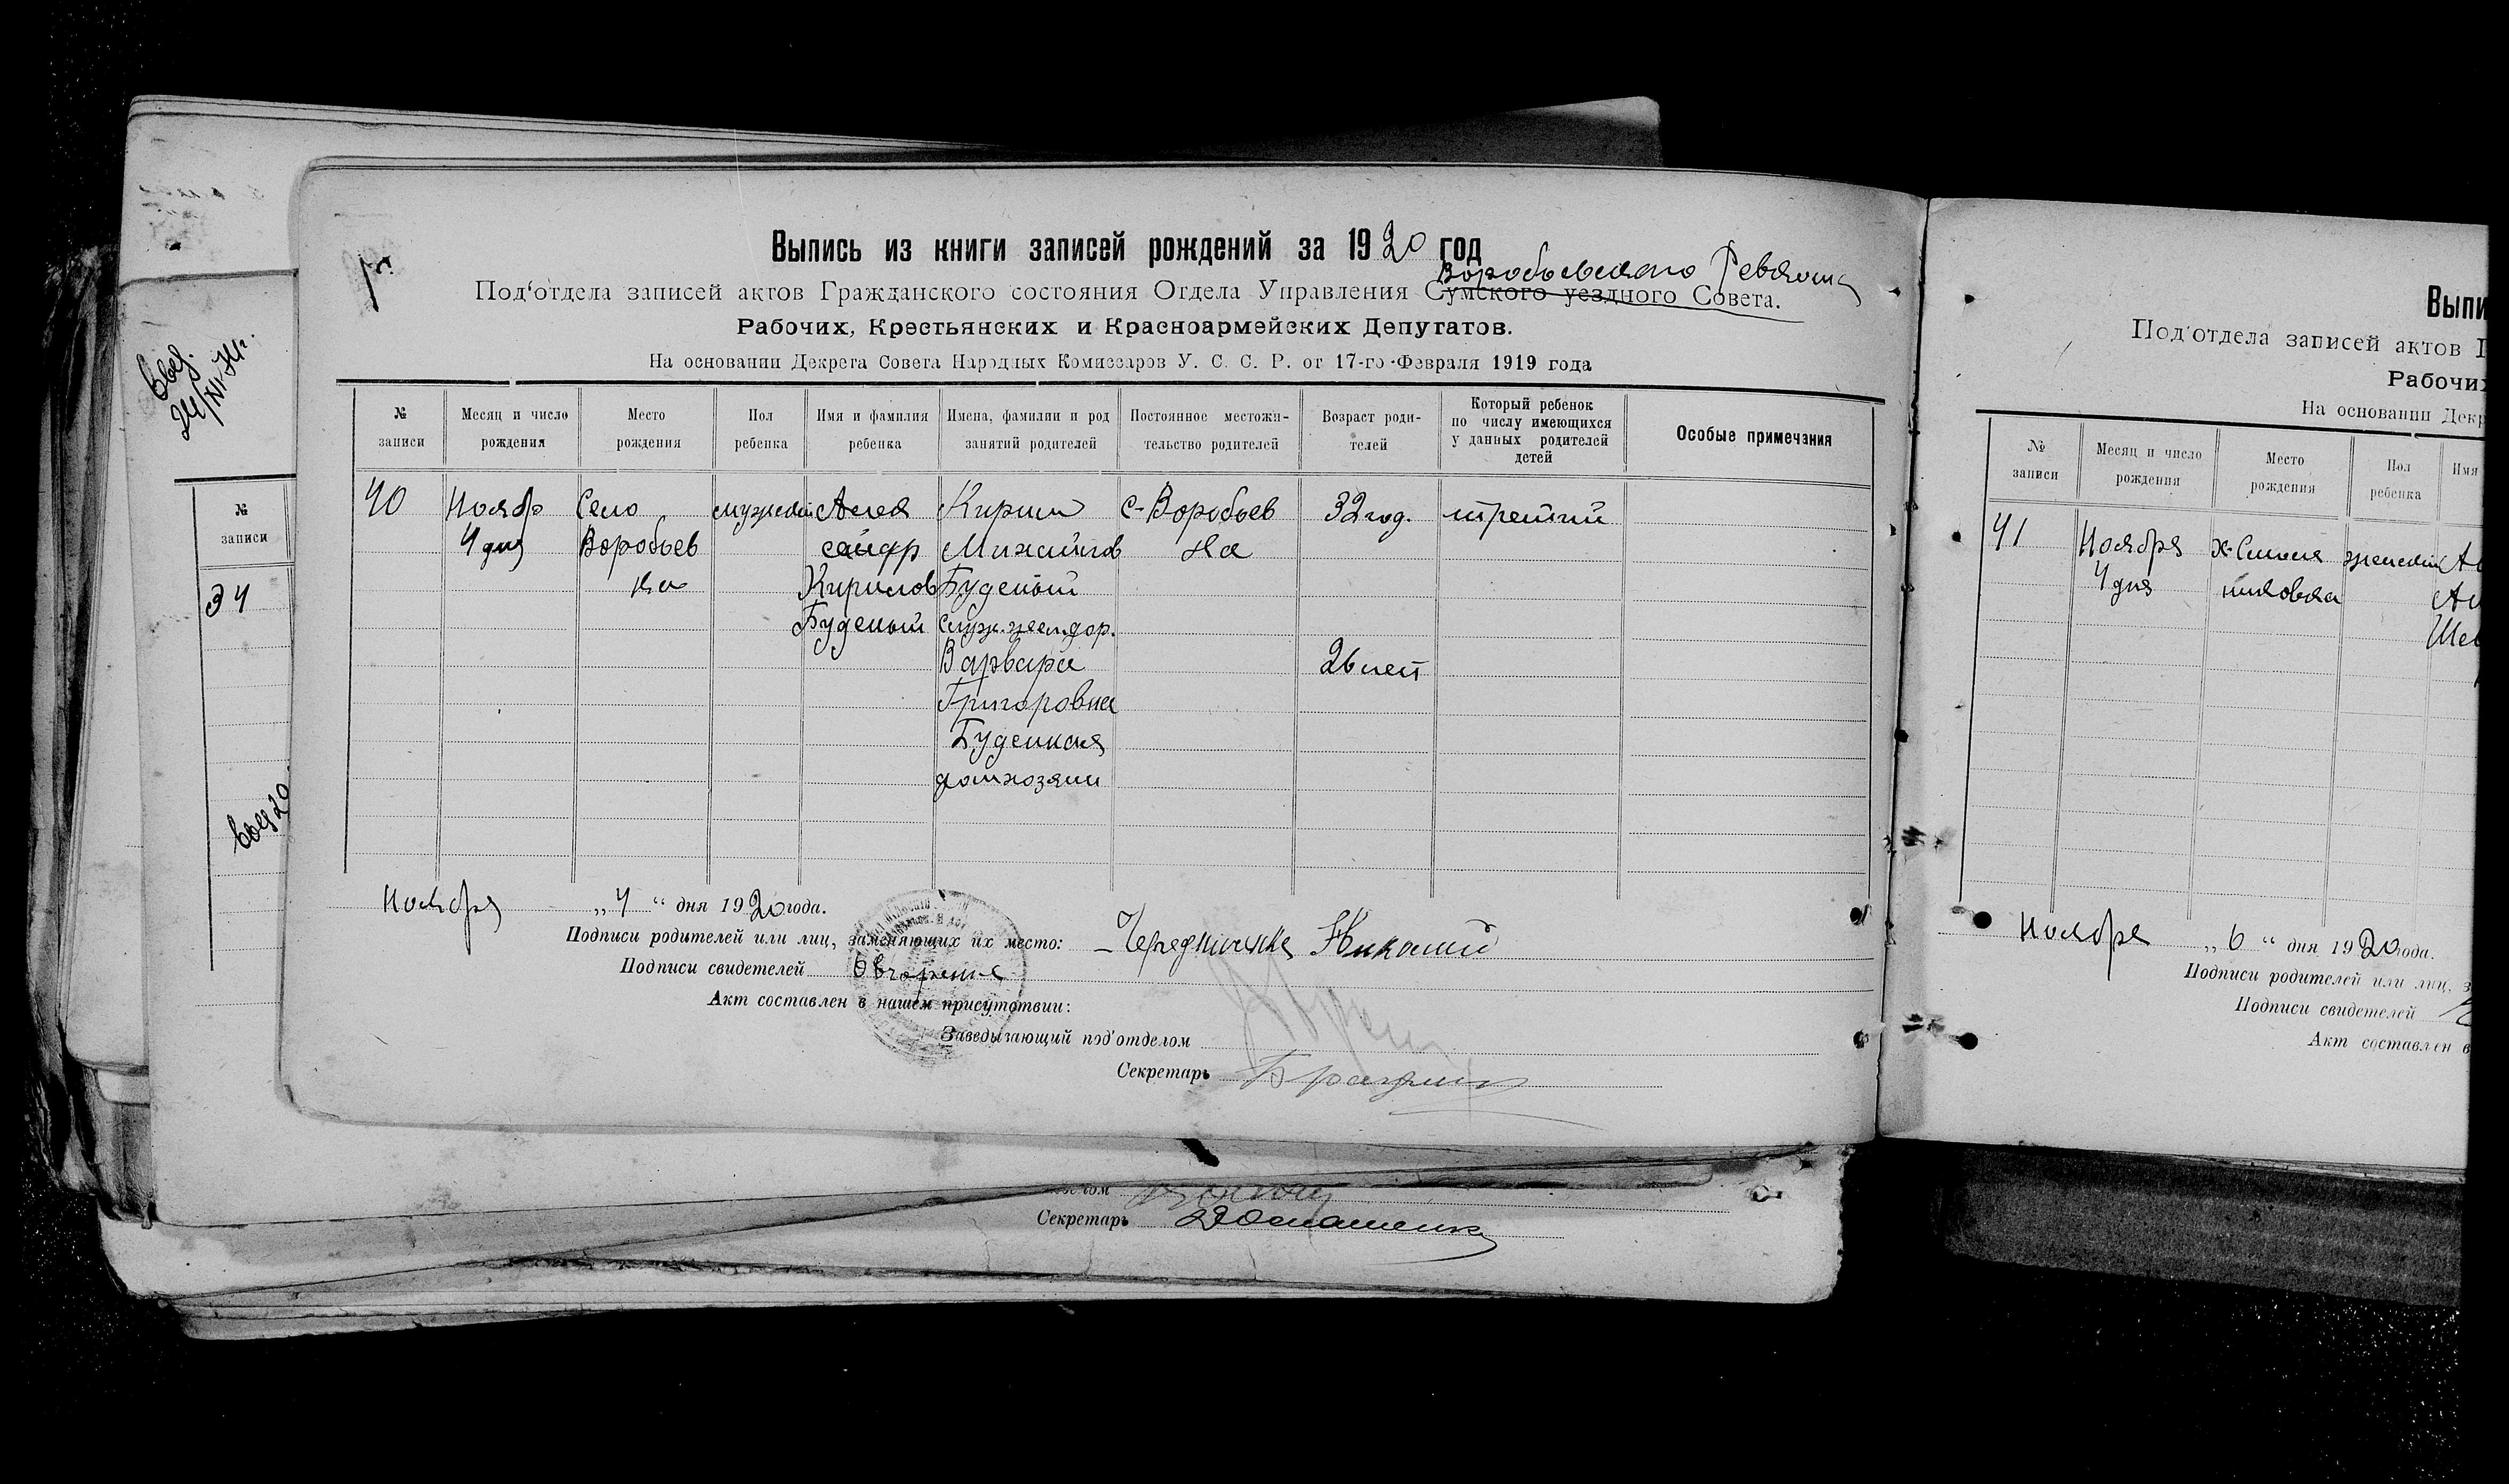 Выпись из книги записей рождений за 1920 год
Воробьевского Ревкома
Под'отдела записей актов Гражданского состояния Отдела Управления Сумского уездного Совета.
Рабочих, Крестьянских и Красноармейских Депутатов.
На основании Декрета Совета Народных Комиссаров У. С. С. Р. от 17-го Февраля 1919 года
№ записи
Месяц и число рождения
Место рождения
Пол ребенка
Имя и фамилия ребенка
Имена, фамилии и род занятий родителей
Постоянное местожительство родителей
Возраст родителей
Который ребенок по числу имеющихся у данных родителей детей
Особые примечания
40 Ноябр Село мужской Алек Кирил с-Воробьев 32 год. третий
4 дня Воробьев сандр Михайлов ка
ка Кирилов Буденый
Буденый служ. жел. дор.
Варвара 26 лет
Григоровна
Буденная
домхозяин
Ноября „4“ дня 1920 года.
Подписи родителей или лиц, заменяющих их место: – Чередниченко Николай
Подписи свидетелей Овчаренко
Акт составлен в нашем присутствии:
Заведывающий под'отделом
Секретарь
Секретарь
№ записи
34
Выпи
Под'отдела записей актов Г
Рабочих
На основании Декр
№ записи
Месяц и число рождения
Место рождения
Пол ребенка
Имя
41 Ноября женский
4 дня
Ноября „6“ дня 1920 года.
Подписи родителей или лиц, з
Подписи свидетелей
Акт составлен в